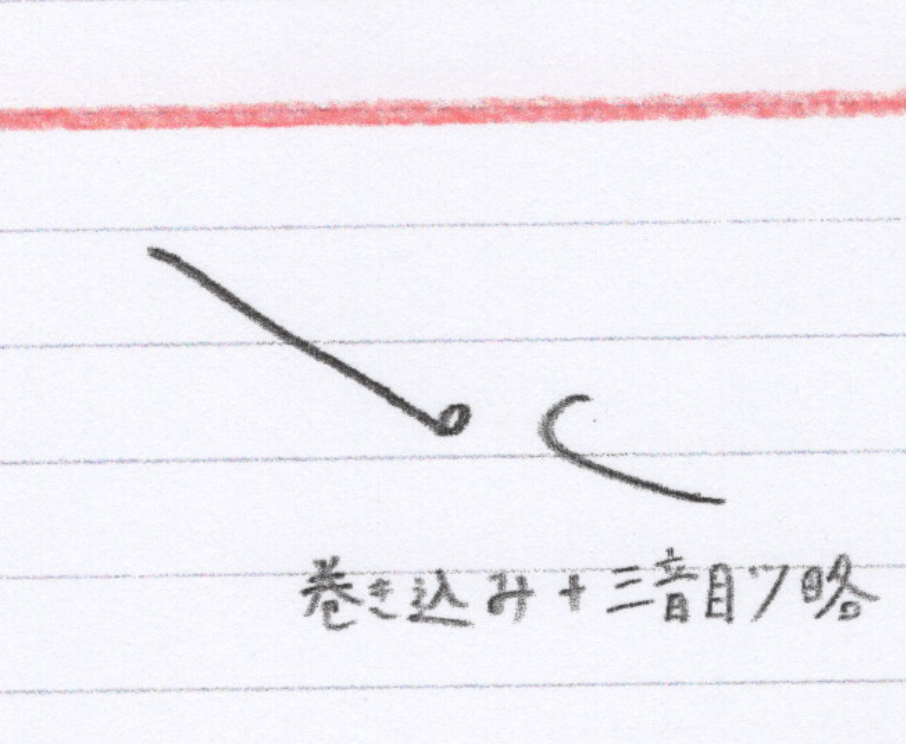 巻き込み+三音目ツ略